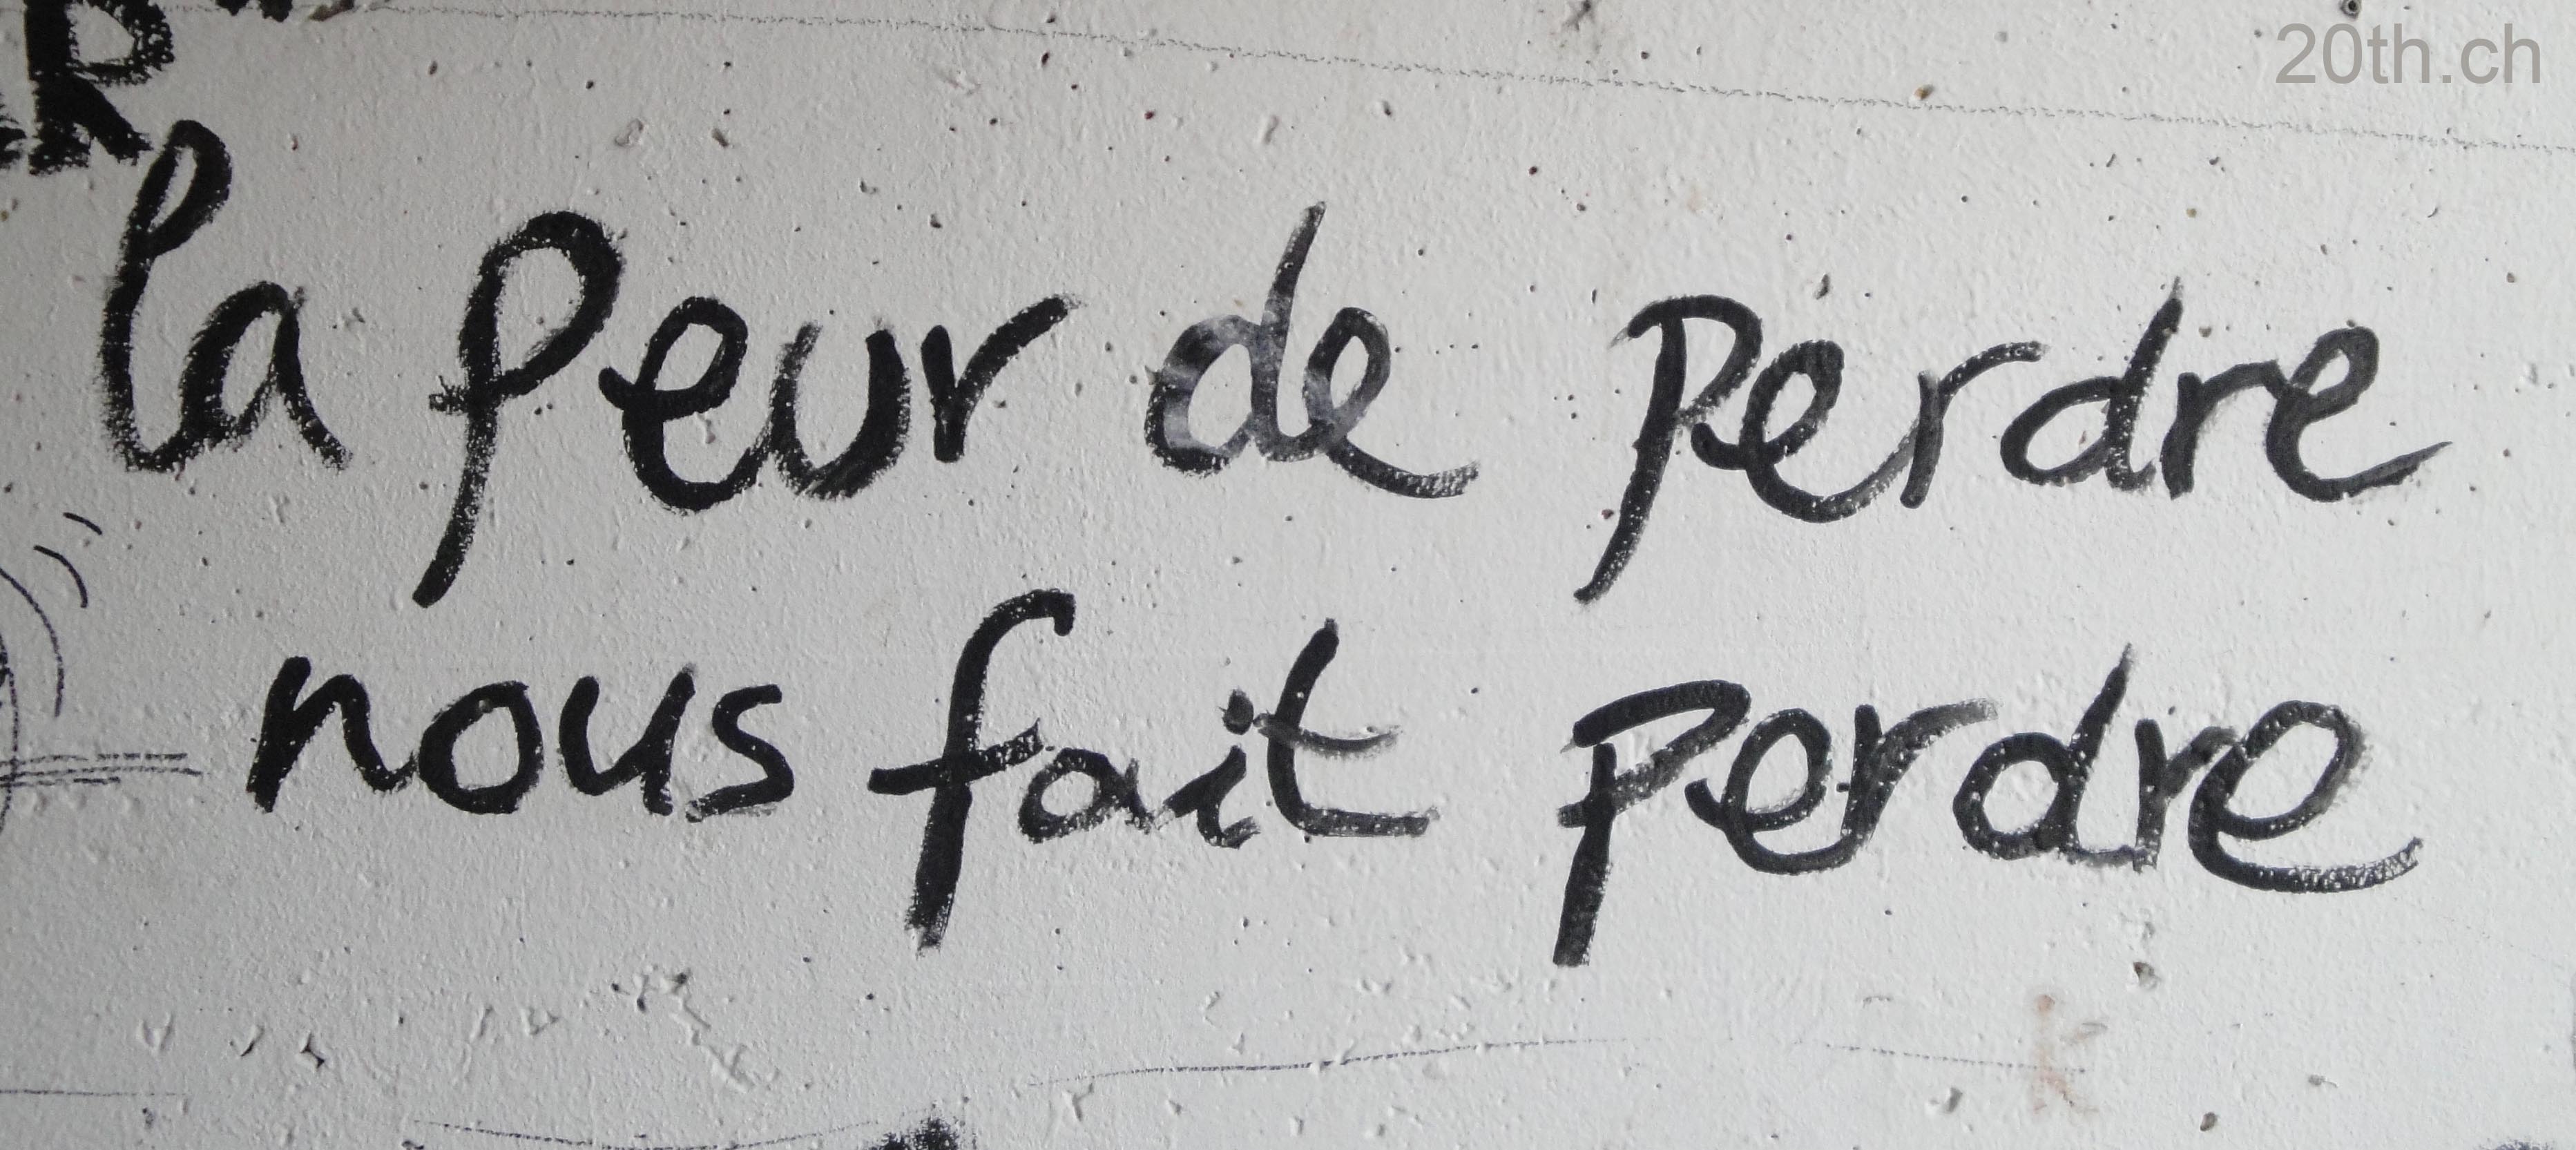 20th.ch
la peur de perdre
nous fait perdre